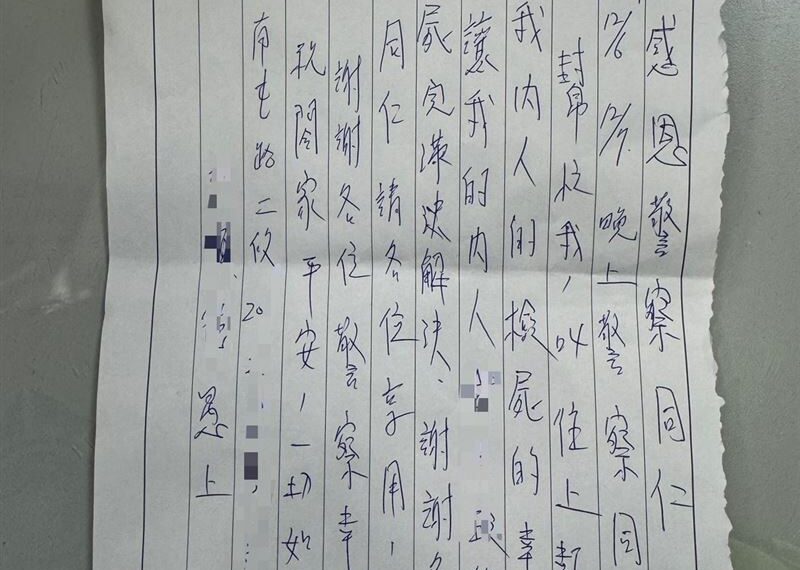 感恩警察同仁
12/6 12/7 晚上警察同
封幫忙我，叫住上
我內人的檢屍的幸
讓我的內人
屍完滿決解決、謝謝
同仁請各位享用，
謝謝各位警察幸
祝閤家平安，一切如
南屯路二段20
愚上